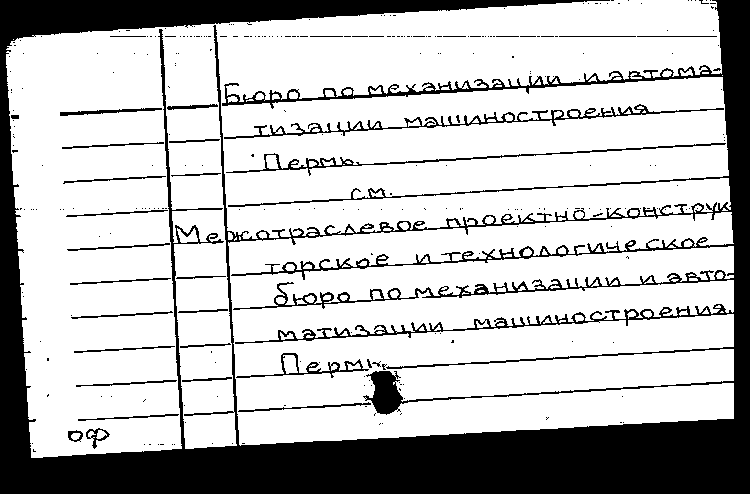 Бюро по механизации и автома-
тизации машиностроения
Пермь.
см.
Межотраслевое проектно-конструк
торское и технологическое
бюро по механизации и авто-
матизации машиностроения.
Пермь.
оф